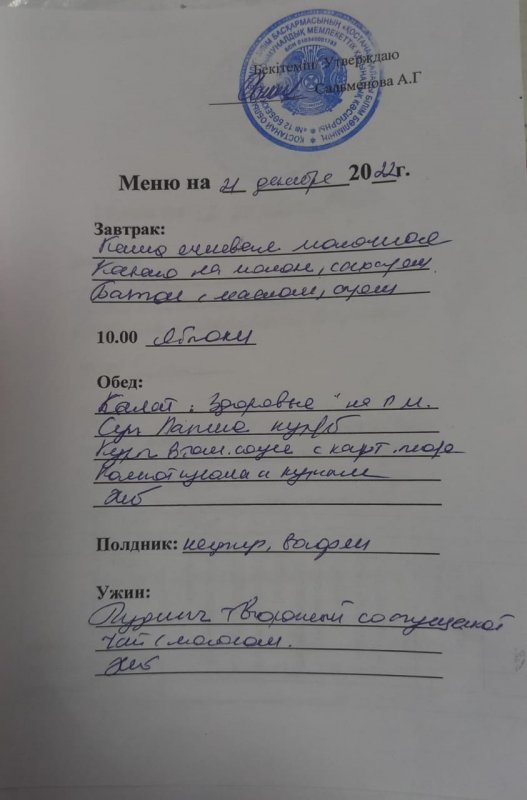 Бекітемін Утверждаю
Сальменова А.Г
Меню на 21 декабре 2022г.
Завтрак:
Каша ячневая молочная
Какао на молоке, сахаром
Батон с маслом, сыром
10.00 Яблоки
Обед:
Салат "Здоровье" на р.м.
Суп Лапша кур/б
Куры в том. соусе с карт. пюре
Компот
Хлеб
Полдник: вафли
Ужин:
Пудинг творожный со сгущенкой
Чай с молоком.
Хлеб